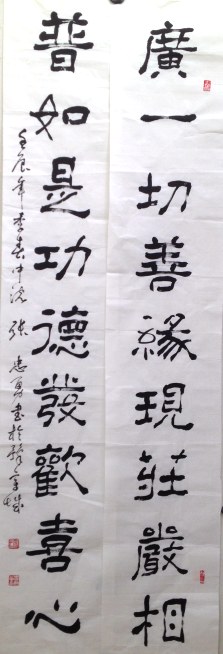 廣一切善緣現莊嚴相
普如是功德發歡喜心
壬辰年季春中浣 張忠勇書於